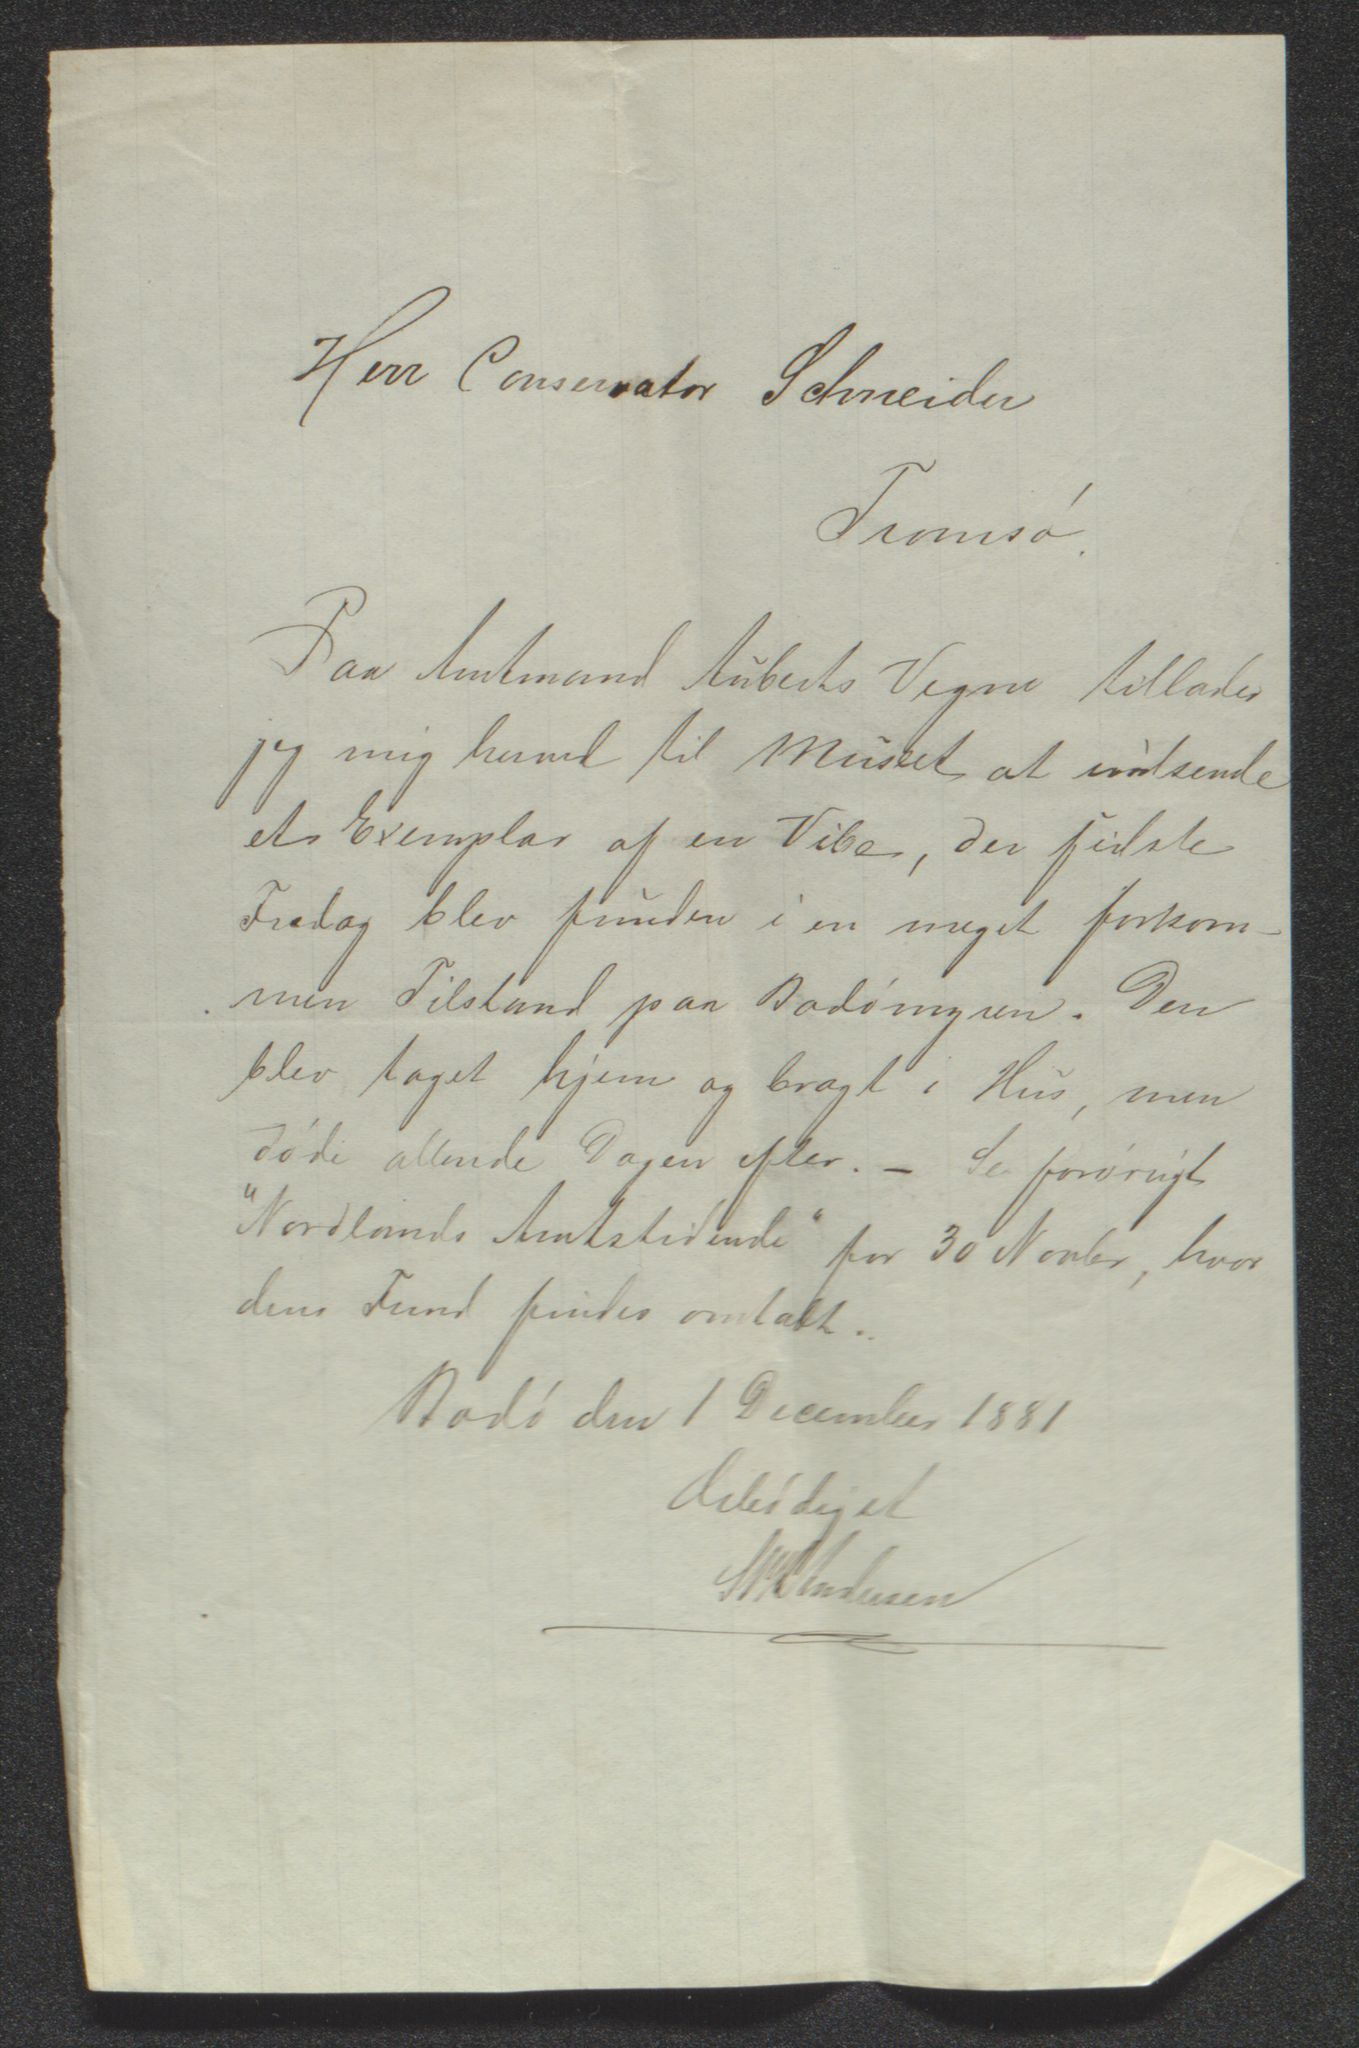 Herr Conservator Schneider
Tromsó.
Paa Amtmand Auberts Vegne tillader
jeg mig herved til Muset at indsende
et Exemplar af en Vibe, der sidste
Fredag blev funden i en meget forkom-
men Tilstand paa Bodómyren. Den
blev taget hjem og bragt i Hus, men
döde allerede Dagen efter. - Se forörigt
"Nordlands Amtstidende" for 30 Novbr, hvor
dens Fund findes omtalt.
Bodó den 1 December 1881
Ærbödigst
Andersen